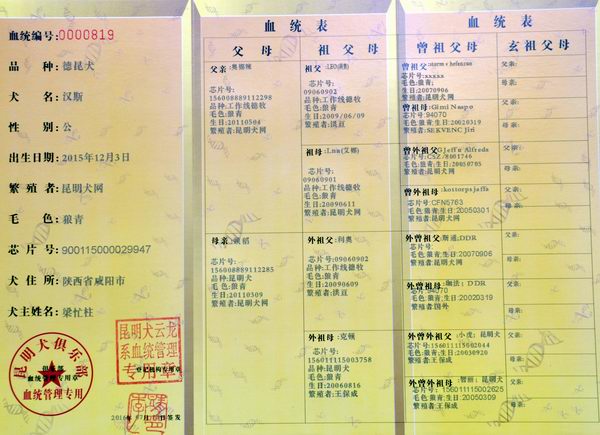 血统编号:0000819
品 种:德昆犬
犬 名:汉斯
性 别:公
出生日期:2015年12月3日
繁 殖 者:昆明犬网
毛 色:狼青
芯 片 号:900115000029947
犬 住 所:陕西省咸阳市
犬主姓名:梁忙柱
昆明犬俱乐部
俱乐部
血统管理专用章
血统管理专用
昆明犬云龙
系血统管理
专用章
登记机构专用章
签发
血 统 表
父 母
父亲:奥娜辣
芯片号:
156008889112298
品种:工作线德牧
毛色:狼青
生日:20110504
繁殖者:昆明犬网
母亲
芯片号:
156008889112285
品种:昆明犬
毛色:狼青
生日:20110309
繁殖者:昆明犬网
祖 父 母
祖父:LEO(满贯)
芯片号:
09060902
品种:工作线德牧
毛色:狼青
生日:2009/06/09
繁殖者:洪豆
祖母:Luna(艾娜)
芯片号:
09060901
品种:工作线德牧
毛色:狼青
生日:20090611
繁殖者:洪豆
外祖父:利奥
芯片号:
09060902
品种:工作线德牧
毛色:狼青
生日:20090609
繁殖者:洪豆
外祖母:克顿
芯片号:
156011115003758
品种:昆明犬
毛色:狼青
生日:20060816
繁殖者:王保成
血 统 表
曾祖父母
曾祖父:
芯片号:xxxxx
毛色:狼青
生日:20070906
繁殖者:昆明犬网
曾祖母:Gimi Naspo
芯片号:94070
毛色:狼青生日:20020319
繁殖者:SEKVENC Jiri
曾外祖父:Jeffu Alfreda
芯片号:CSZ/8001746
毛色:狼青生日:20050705
繁殖者:昆明犬网
曾外祖母:kostorpsjaffa
芯片号:CFN5763
毛色:狼青生日:20050301
繁殖者:昆明犬网
外曾祖父:斯通;DDR
芯片号:
毛色:狼青生日:20070906
繁殖者:昆明犬网
外曾祖母:珈法;DDR
芯片号:94070
毛色:狼青生日:20020319
繁殖者:国外
外曾外祖父:小虎;昆明犬
芯片号:156011115002044
毛色:狼青生日:20030920
繁殖者:王保成
外曾外祖母:智丽;昆明犬
芯片号:156011115002625
毛色:狼青生日:20050309
繁殖者:王保成
玄祖父母
父亲:
母亲:
父亲:
母亲:
父亲:
母亲:
父亲:
母亲:
父亲:
母亲:
父亲:
母亲:
父亲:
母亲:
父亲:
母亲: